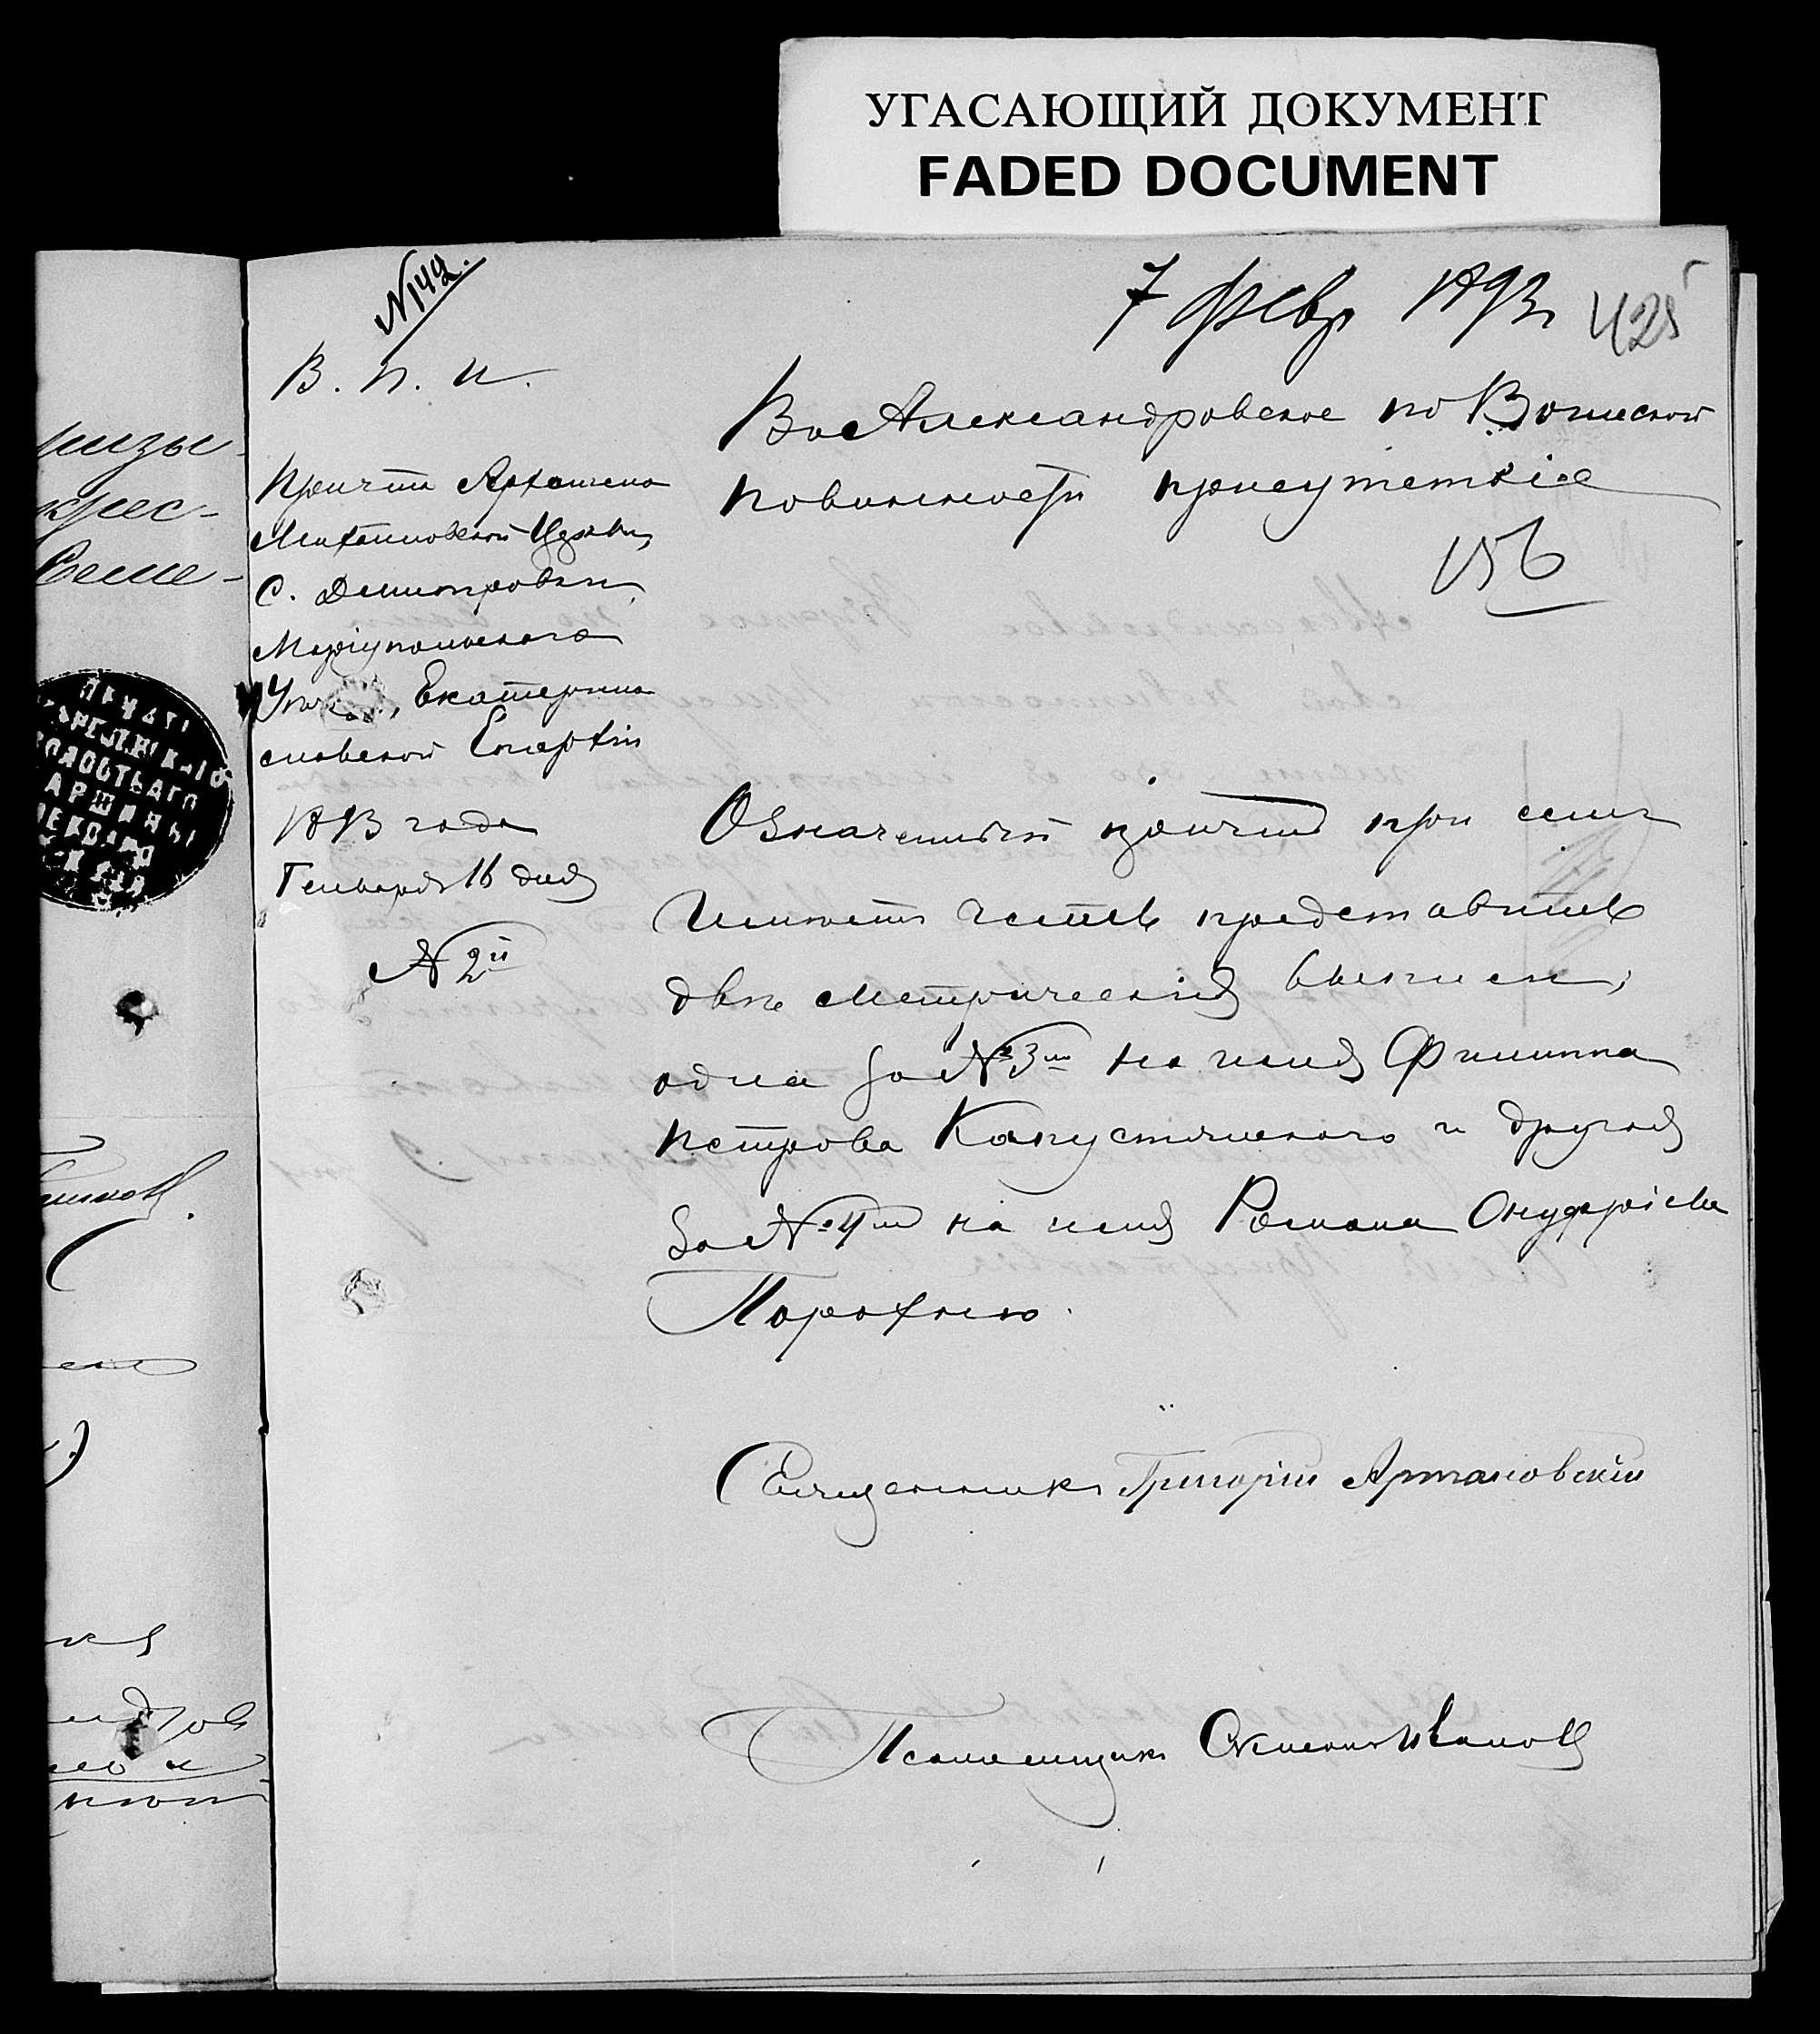 УГАСАЮЩИЙ ДОКУМЕНТ
FADED DOCUMENT
№ 142.
7 Февр 1893 г
425
В. П. И.
Причтъ Архангело
Михайловской Церкви,
С. Димитровки,
Маріупольскаго
Уѣзда, Екатерино
славской Епархіи
1893 года
Генваря 16 дня
№ 2й
Въ Александровское по Воинской
повинности присутствіе
156
Означенный причтъ при семъ
имѣетъ честь представить
двѣ метрическія выписи,
одна за № 3м на имя Филиппа
Петрова Капустянского и другая
за № 4м на имя Романа Онуфріева
Порохню.
Священникъ Григорій Артановскій
Псаломщикъ Іванов
призы-
крес-
Семе-